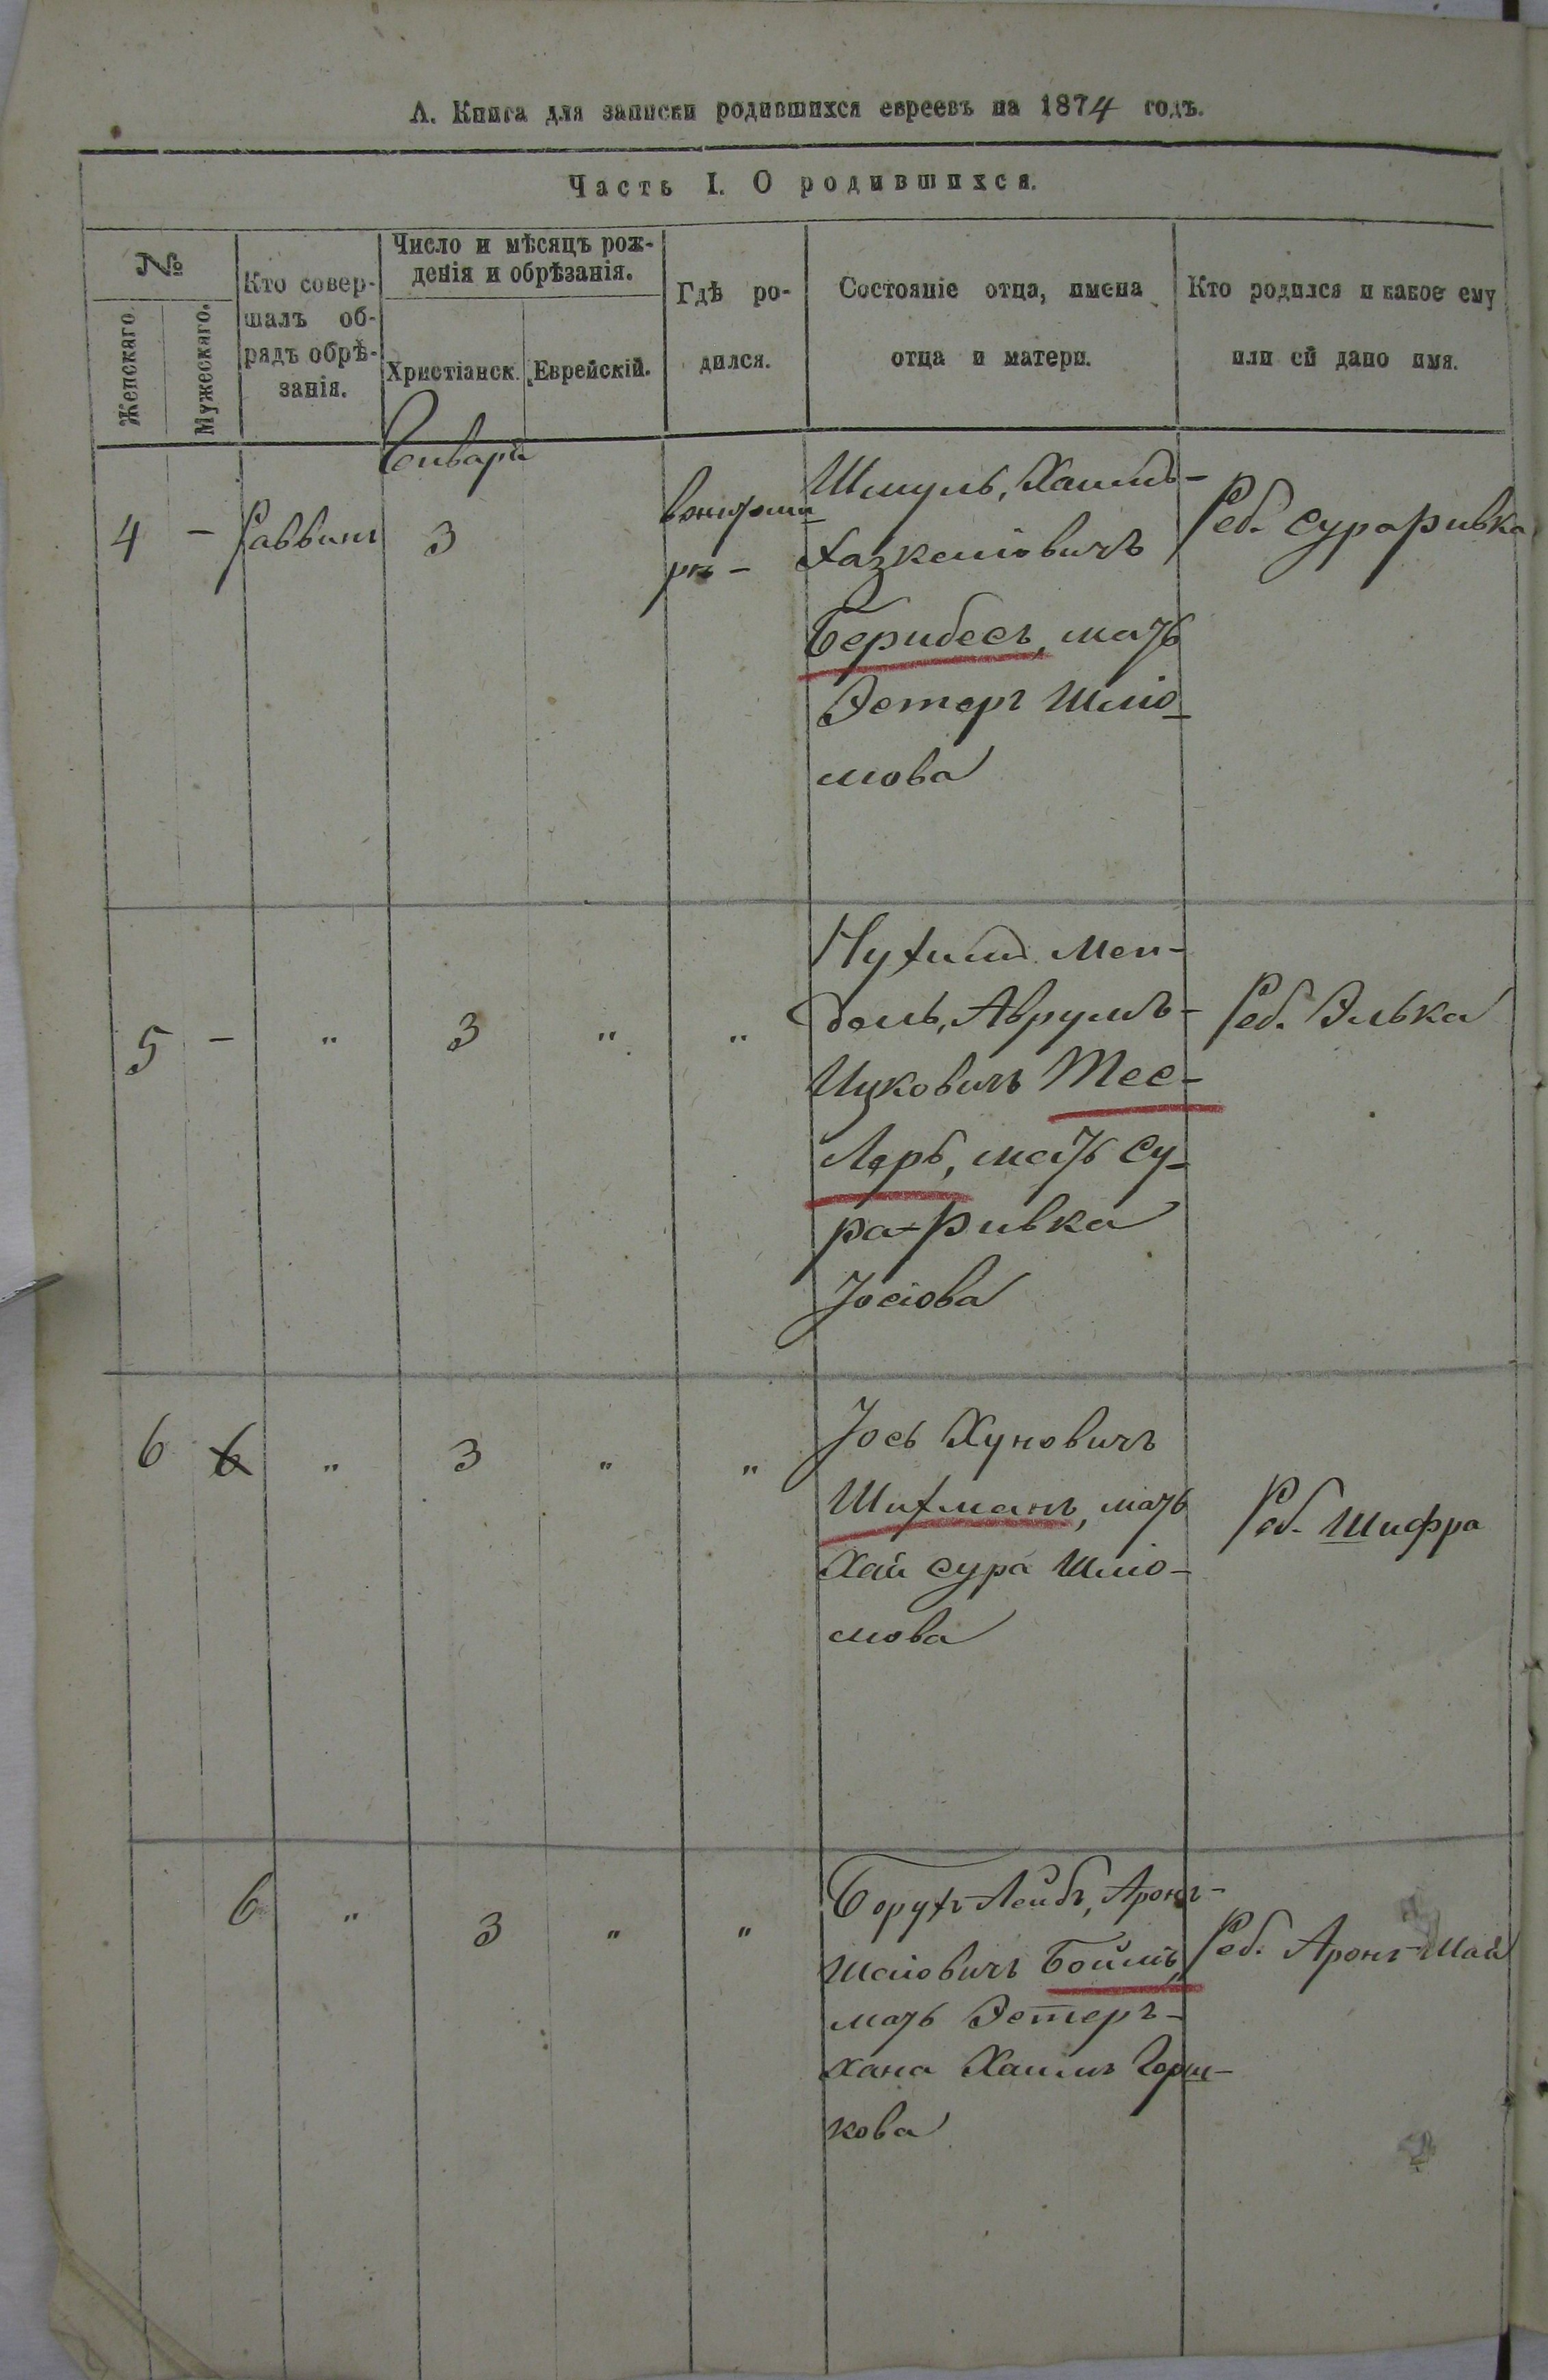 А. Книга для записки родившихся евреевъ на 1874 годъ.
Часть I. О родившихся.
№
Женскаго.
Мужескаго.
Кто совер-
шалъ об-
рядъ обрѣ-
занія.
Число и мѣсяцъ рож-
денія и обрѣзанія.
Христіанск.
Еврейскій.
Гдѣ ро-
дился.
Состояніе отца, имена
отца и матери.
Кто родился и какое ему
или ей дано имя.
Января
4 - Раввинъ 3
Шмуль, Хаимъ-
Хазкеліовичъ
Берибесъ, мать
Эстеръ Шлiо-
мова
Реб. Сура Ривка
5 - " 3 " "
Нухимъ Мен-
дель, Аврумъ-
Ицковичъ Тес-
леръ, мать Су-
ра-Ривка
Іосіова
Реб. Элька
6 6 " 3 " "
Іось Хуновичъ
Шихманъ, мать
Хая Сура Шлiо-
мова
Реб. Шифра
6 " 3 " "
Борухъ-Лейбъ, Аронъ-
Шаіовичъ Боймъ,
мать Эстеръ-
Хана Хаимъ Горш-
кова
Реб. Аронъ-Шая